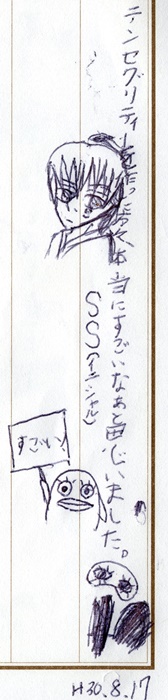 テンセグリティーを作った方々は本当にすごいなぁと思じいました。
SS(イニシャル)
すごい!
H30.8.17